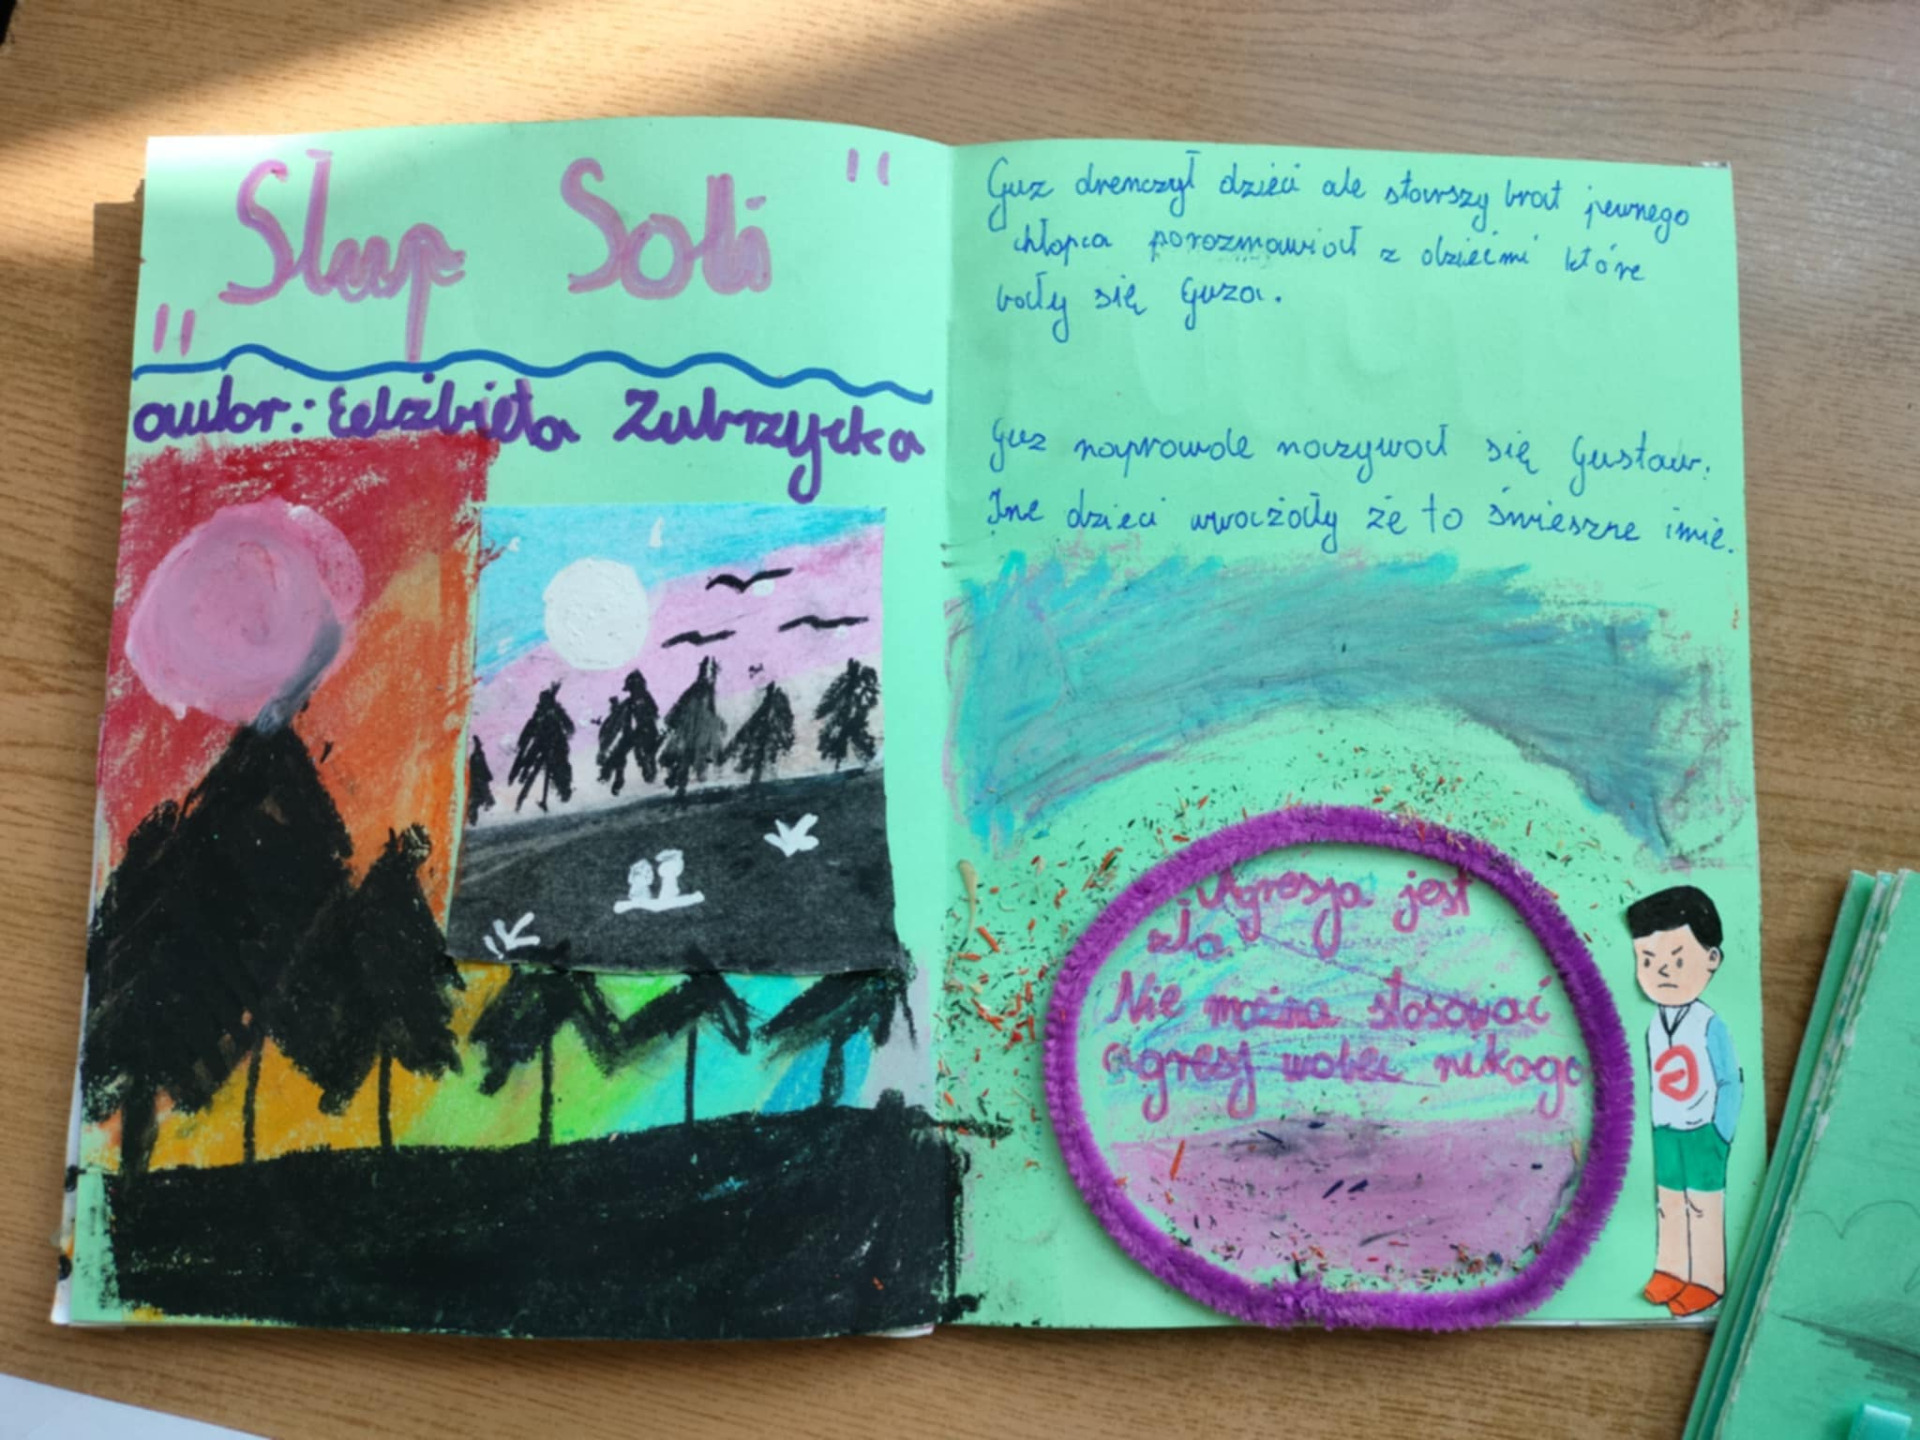 „Słup Soli"
autor: Eelżbieta Zubrzycka
Guz drenczył dzieci ale starszy brat pewnego
chłopca porozmawiał z dziećmi które
bały się Guza.
Guz naprawde naczywał się Gustaw.
Ine dzieci uwarzały że to śmieszne imię.
Agresja jest
zła
Nie można stosować
agresj wobec nikogo